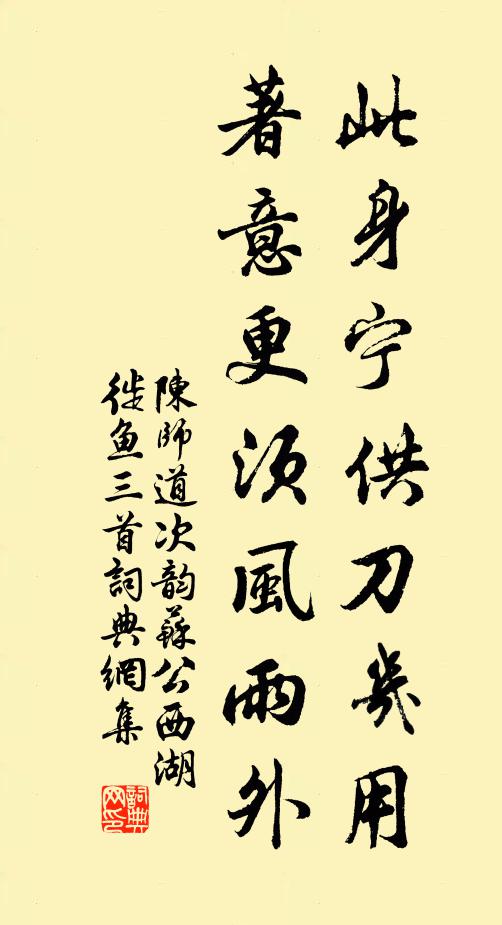 此身宁供刀几用
著意更须風雨外
陳師道次韵蘇公西湖
徙魚三首詞典網集
詞典
网印